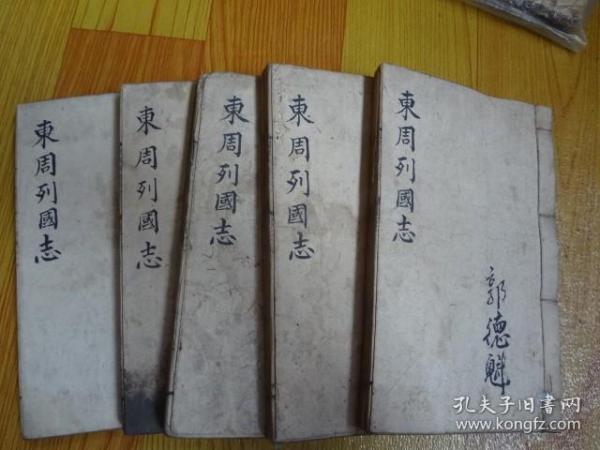 東周列國志
東周列國志
東周列國志
東周列國志
東周列國志
郭德魁
孔夫子旧書网
www.kongfz.com